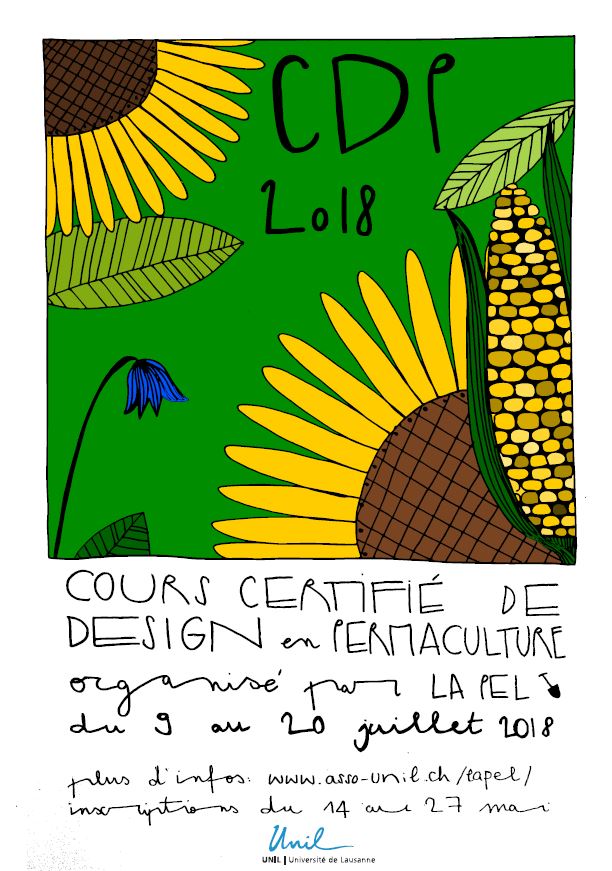 CDP
2018
COURS CERTIFIÉ DE
DESIGN en PERMACULTURE
organisé par LA PEL
du 9 au 20 juillet 2018
plus d'infos: www.asso-unil.ch/lapel/
inscriptions du 14 au 27 mai
Unil
UNIL | Université de Lausanne